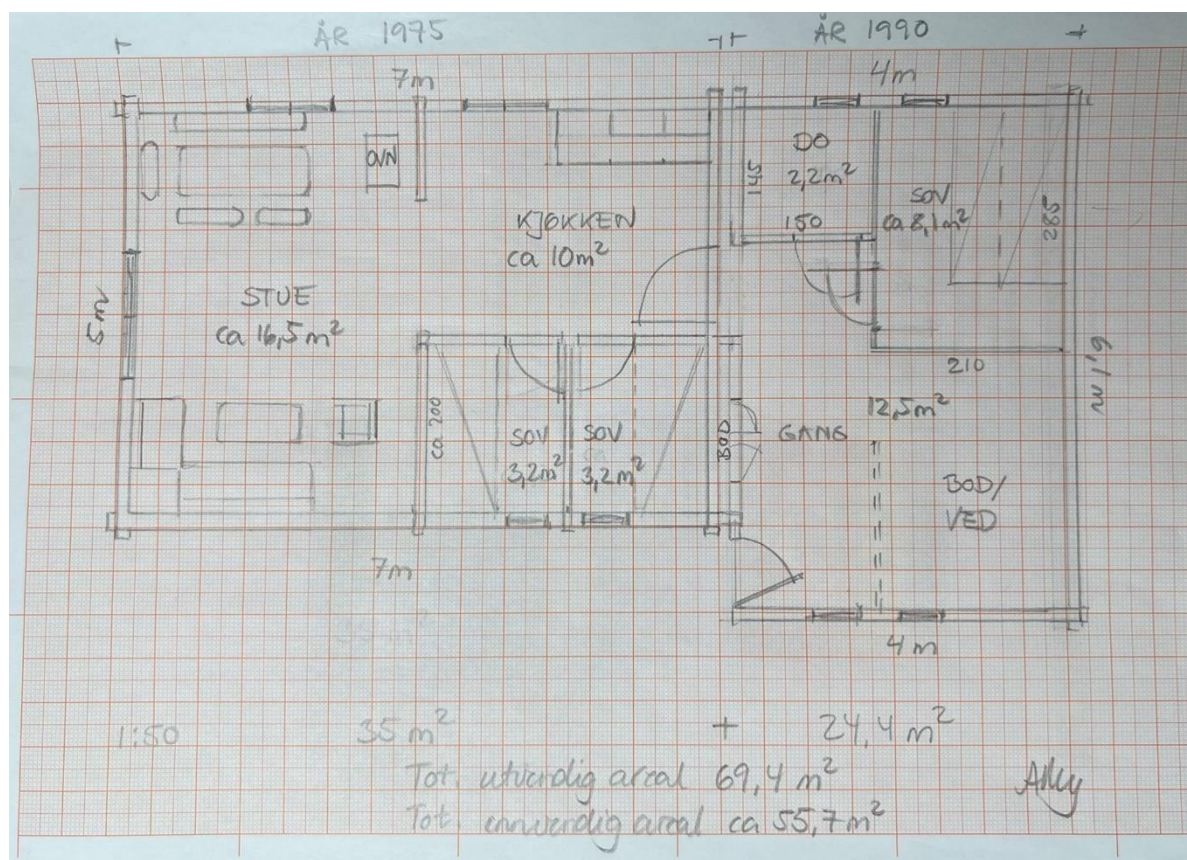 ÅR 1975
ÅR 1990
7m
4m
OVN
DO
2,2m²
145
150
SOV
ca 8,1m²
285
KJØKKEN
ca 10m²
STUE
ca 16,5m²
5m
6,1m
210
ca 200
SOV
3,2m²
SOV
3,2m²
BOD
GANG
12,5m²
BOD/
VED
7m
4m
1:50
35 m²
+
24,4 m²
Tot. utvendig areal 69,4 m²
Tot. innvendig areal ca 55,7m²